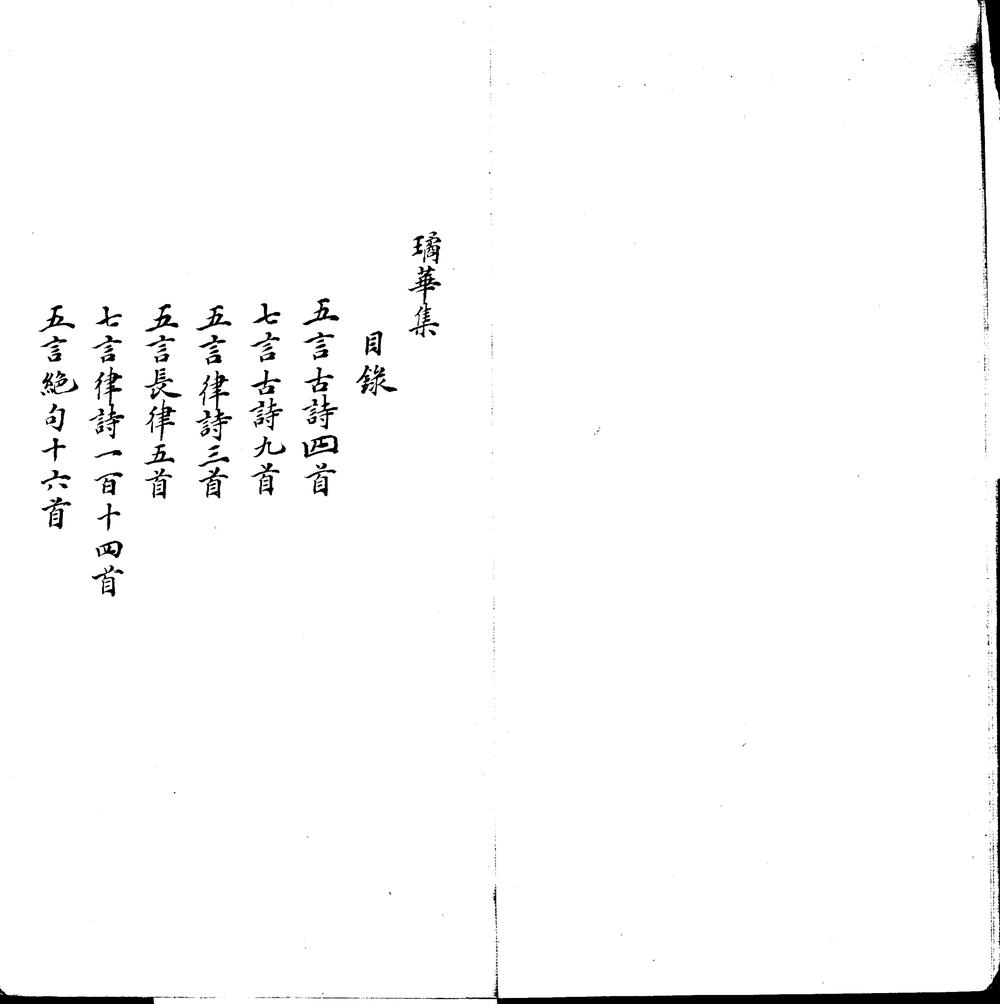 璚華集
目錄
五言古詩四首
七言古詩九首
五言律詩三首
五言長律五首
七言律詩一百十四首
五言絕句十六首